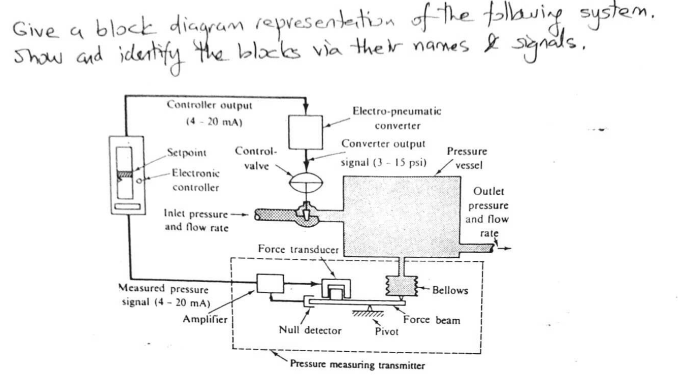 Give a block diagram representation of the following system.
Show and identify the blocks via their names & signals.
Controller output
(4 - 20 mA)
Electro-pneumatic
converter
Setpoint
Electronic
controller
Control-
valve
Converter output
signal (3 - 15 psi)
Pressure
vessel
Inlet pressure
and flow rate
Outlet
pressure
and flow
rate
Force transducer
Measured pressure
signal (4 - 20 mA)
Amplifier
Bellows
Null detector
Pivot
Force beam
Pressure measuring transmitter